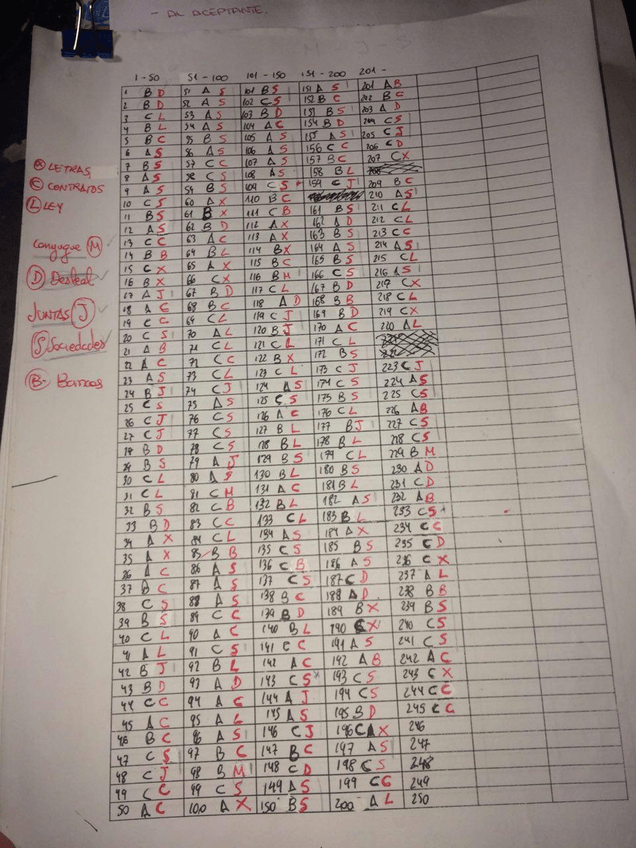 - AL ACEPTANTE.
1 - 50 51 - 100 101 - 150 151 - 200 201 -
1 B D 51 A S 101 B S 151 A S 201 A B
2 B D 52 A S 102 C S 152 B C 202 B C
3 C L 53 A S 103 B D 153 B S 203 A D
4 B L 54 A S 104 A C 154 B D 204 C S
5 B C 55 B S 105 A S 155 A S 205 C J
6 A S 56 A S 106 A S 156 C C 206 C D
7 B S 57 C C 107 A S 157 B C 207 C X
8 A S 58 C S 108 A S 158 B L
9 A S 59 B S 109 C S 159 C J 209 B C
10 C S 60 A X 110 B C 210 A S
11 B S 61 B X 111 C B 161 B S 211 C L
12 A S 62 B D 112 A X 162 A D 212 C L
13 C C 63 A C 113 A X 163 B S 213 C C
14 B B 64 B L 114 B X 164 A S 214 A S
15 C X 65 A X 115 B C 165 B S 215 C L
16 B X 66 C X 116 B M 166 C S 216 A S
17 A J 67 B D 117 C L 167 B D 217 C X
18 A C 68 B C 118 A D 168 B B 218 C L
19 C C 69 C L 119 C J 169 B D 219 C X
20 C S 70 A L 120 B J 170 A C 220 A L
21 A B 71 C L 121 C L 171 C L
22 A C 72 C C 122 B X 172 B S
23 A S 73 C L 123 C L 173 C J 223 C J
24 B J 74 C J 124 A S 174 C S 224 A S
25 C S 75 A S 125 C S 175 B S 225 C S
26 C J 76 C S 126 A C 176 C L 226 A B
27 C J 77 C S 127 B L 177 B J 227 C S
28 B D 78 C S 128 B L 178 B L 228 C S
29 B S 79 A J 129 B S 179 C L 229 B M
30 C L 80 A S 130 B L 180 B S 230 A D
31 C L 81 C M 131 A C 181 B L 231 C D
32 B S 82 C B 132 B L 182 A S 232 A B
33 B D 83 C C 133 C L 183 B L 233 C S
34 A X 84 C L 134 A S 184 A X 234 C C
35 A X 85 B B 135 C S 185 B S 235 C D
36 A C 86 A S 136 C B 186 A S 236 C X
37 B C 87 A S 137 C S 187 C D 237 A L
38 C S 88 A S 138 B C 188 A D 238 B B
39 B S 89 C C 139 B D 189 B X 239 B S
40 C L 90 A C 140 B L 190 C X 240 C S
41 A L 91 C S 141 C C 191 A S 241 C S
42 B J 92 B L 142 A C 192 A B 242 A C
43 B D 93 A D 143 C S 193 C S 243 C X
44 C C 94 A C 144 A J 194 C S 244 C C
45 A C 95 A L 145 A S 195 B D 245 C C
46 B C 96 A S 146 C J 196 C A X 246
47 C S 97 B C 147 B C 197 A S 247
48 C J 98 B M 148 C D 198 C S 248
49 C C 99 C S 149 A S 199 C C 249
50 A C 100 A X 150 B S 200 A L 250
A LETRAS
C CONTRATOS
L LEY
Conyugue M
D Desleal
JUNTAS J
S Sociedades
B - Bancos